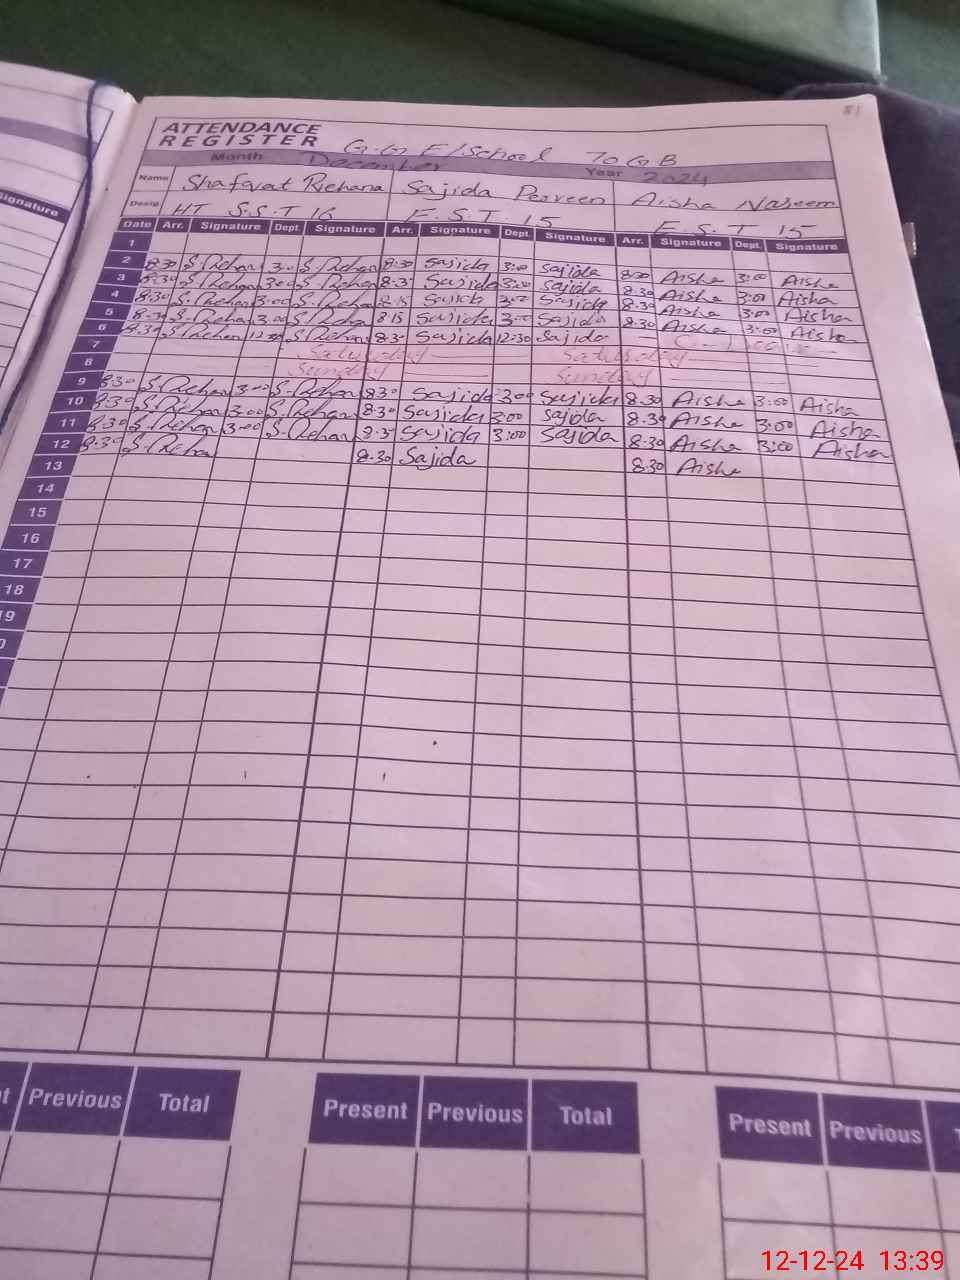 81
ATTENDANCE
REGISTER G.G.E/School 70 GB
Month December Year 2024
Signature Name Shafqat Rehana Sajida Perveen Aisha Naseem
Desig HT S.S.T 16 E.S.T 15 E.S.T 15
Date Arr. Signature Dept. Signature Arr. Signature Dept. Signature Arr. Signature Dept. Signature
1
2 8:30 S.Rehan 3:00 S.Rehan 8:30 Sajida 3:00 Sajida 8:30 Aisha 3:00 Aisha
3 8:30 S.Rehan 3:00 S.Rehan 8:30 Sajida 3:00 Sajida 8:30 Aisha 3:00 Aisha
4 8:30 S.Rehan 3:00 S.Rehan 8:15 Sajida 3:00 Sajida 8:30 Aisha 3:00 Aisha
5 8:30 S.Rehan 3:00 S.Rehan 8:15 Sajida 3:00 Sajida 8:30 Aisha 3:00 Aisha
6 8:30 S.Rehan 12:30 S.Rehan 8:30 Sajida 12:30 Sajida
7 Saturday Saturday
8 Sunday Sunday
9 8:30 S.Rehan 3:00 S.Rehan 8:30 Sajida 3:00 Sajida 8:30 Aisha 3:00 Aisha
10 8:30 S.Rehan 3:00 S.Rehan 8:30 Sajida 3:00 Sajida 8:30 Aisha 3:00 Aisha
11 8:30 S.Rehan 3:00 S.Rehan 8:30 Sajida 3:00 Sajida 8:30 Aisha 3:00 Aisha
12 8:30 S.Rehan 8:30 Sajida 8:30 Aisha
13
14
15
16
17
18
19
Previous Total Present Previous Total Present Previous
12-12-24 13:39